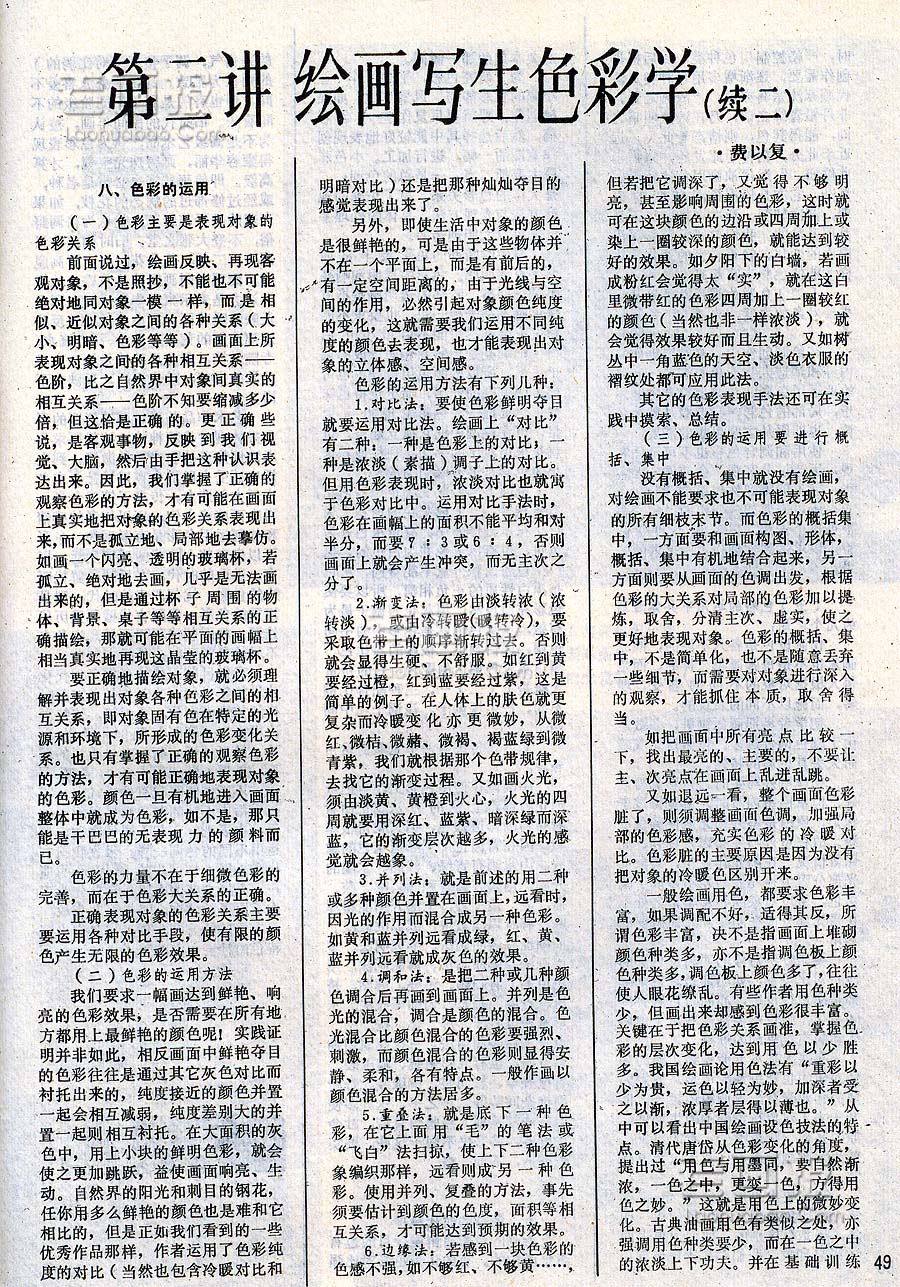 第二讲 绘画写生色彩学(续二)
·费以复·
八、色彩的运用
(一)色彩主要是表现对象的
色彩关系
前面说过，绘画反映、再现客
观对象，不是照抄，不能也不可能
绝对地同对象一模一样，而是相
似、近似对象之间的各种关系(大
小、明暗、色彩等等)。画面上所
表现对象之间的各种相互关系——
色阶，比之自然界中对象间真实的
相互关系——色阶不知要缩减多少
倍，但这恰是正确的。更正确些
说，是客观事物，反映到我们视
觉、大脑，然后由手把这种认识表
达出来。因此，我们掌握了正确的
观察色彩的方法，才有可能在画面
上真实地把对象的色彩关系表现出
来，而不是孤立地、局部地去摹仿。
如画一个闪亮、透明的玻璃杯，若
孤立、绝对地去画，几乎是无法画
出来的，但是通过杯子周围的物
体、背景、桌子等等相互关系的正
确描绘，那就可能在平面的画幅上
相当真实地再现这晶莹的玻璃杯。
要正确地描绘对象，就必须理
解并表现出对象各种色彩之间的相
互关系，即对象固有色在特定的光
源和环境下，所形成的色彩变化关
系。也只有掌握了正确的观察色彩
的方法，才有可能正确地表现对象
的色彩。颜色一旦有机地进入画面
整体中就成为色彩，如不是，那只
能是干巴巴的无表现力的颜料而
已。
色彩的力量不在于细微色彩的
完善，而在于色彩大关系的正确。
正确表现对象的色彩关系主要
要运用各种对比手段，使有限的颜
色产生无限的色彩效果。
(二)色彩的运用方法
我们要求一幅画达到鲜艳、响
亮的色彩效果，是否需要在所有地
方都用上最鲜艳的颜色呢！实践证
明并非如此，相反画面中鲜艳夺目
的色彩往往是通过其它灰色对比而
衬托出来的，纯度接近的颜色并置
一起会相互减弱，纯度差别大的并
置一起则相互衬托。在大面积的灰
色中，用上小块的鲜明色彩，就会
使之更加跳跃，益使画面响亮、生
动。自然界的阳光和刺目的钢花，
任你用多么鲜艳的颜色也是难和它
相比的，但是正如我们看到的一些
优秀作品那样，作者运用了色彩纯
度的对比(当然也包含冷暖对比和
明暗对比)还是把那种灿灿夺目的
感觉表现出来了。
另外，即使生活中对象的颜色
是很鲜艳的，可是由于这些物体并
不在一个平面上，而是有前后的，
有一定空间距离的，由于光线与空
间的作用，必然引起对象颜色纯度
的变化，这就需要我们运用不同纯
度的颜色去表现，也才能表现出对
象的立体感、空间感。
色彩的运用方法有下列几种：
1.对比法：要使色彩鲜明夺目
就要运用对比法。绘画上“对比”
有二种：一种是色彩上的对比；一
种是浓淡(素描)调子上的对比。
但用色彩表现时，浓淡对比也就寓
于色彩对比中。运用对比手法时，
色彩在画幅上的面积不能平均和对
半分，而要7：3或6：4，否则
画面上就会产生冲突，而无主次之
分了。
2.渐变法：色彩由淡转浓(浓
转淡)，或由冷转暖(暖转冷)，要
采取色带上的顺序渐转过去。否则
就会显得生硬、不舒服。如红到黄
要经过橙，红到蓝要经过紫，这是
简单的例子。在人体上的肤色就更
复杂而冷暖变化亦更微妙，从微
红、微桔、微赭、微褐、褐蓝绿到微
青紫，我们就根据那个色带规律，
去找它的渐变过程。又如画火光，
须由淡黄、黄橙到火心，火光的四
周就要用深红、蓝紫、暗深绿而深
蓝，它的渐变层次越多，火光的感
觉就会越象。
3.并列法：就是前述的用二种
或多种颜色并置在画面上，远看时，
因光的作用而混合成另一种色彩。
如黄和蓝并列远看成绿，红、黄、
蓝并列远看就成灰色的效果。
4.调和法：是把二种或几种颜
色调合后再画到画面上。并列是色
光的混合，调合是颜色的混合。色
光混合比颜色混合的色彩要强烈、
刺激，而颜色混合的色彩则显得安
静、柔和，各有特点。一般作画以
颜色混合的方法居多。
5.重叠法：就是底下一种色
彩，在它上面用“毛”的笔法或
“飞白”法扫掠，使上下二种色彩
象编织那样，远看则成另一种色
彩。使用并列、复叠的方法，事先
须要估计到颜色的色度，面积等相
互关系，才可能达到预期的效果。
6.边缘法：若感到一块色彩的
色感不强，如不够红、不够黄……，
但若把它调深了，又觉得不够明
亮，甚至影响周围的色彩，这时就
可在这块颜色的边沿或四周加上或
染上一圈较深的颜色，就能达到较
好的效果。如夕阳下的白墙，若画
成粉红会觉得太“实”，就在这白
里微带红的色彩四周加上一圈较红
的颜色(当然也非一样浓淡)，就
会觉得效果较好而且生动。又如树
丛中一角蓝色的天空、淡色衣服的
褶纹处都可应用此法。
其它的色彩表现手法还可在实
践中摸索、总结。
(三)色彩的运用要进行概
括、集中
没有概括、集中就没有绘画，
对绘画不能要求也不可能表现对象
的所有细枝末节。而色彩的概括集
中，一方面要和画面构图、形体，
概括、集中有机地结合起来，另一
方面则要从画面的色调出发，根据
色彩的大关系对局部的色彩加以提
炼，取舍，分清主次、虚实，使之
更好地表现对象。色彩的概括、集
中，不是简单化，也不是随意丢弃
一些细节，而需要对对象进行深入
的观察，才能抓住本质，取舍得
当。
如把画面中所有亮点比较一
下，找出最亮的、主要的，不要让
主、次亮点在画面上乱迸乱跳。
又如退远一看，整个画面色彩
脏了，则须调整画面色调，加强局
部的色彩感，充实色彩的冷暖对
比。色彩脏的主要原因是因为没有
把对象的冷暖色区别开来。
一般绘画用色，都要求色彩丰
富，如果调配不好，适得其反，所
谓色彩丰富，决不是指画面上堆砌
颜色种类多，亦不是指调色板上颜
色种类多，调色板上颜色多了，往往
使人眼花缭乱。有些作者用色种类
少，但画出来却感到色彩很丰富。
关键在于把色彩关系画准，掌握色
彩的层次变化，达到用色以少胜
多。我国绘画论用色法有“重彩以
少为贵，运色以轻为妙，加深者受
之以渐，浓厚者层得以薄也。”从
中可以看出中国绘画设色技法的特
点。清代唐岱从色彩变化的角度，
提出过“用色与用墨同，要自然渐
浓，一色之中，更变一色，方得用
色之妙。”这就是用色上的微妙变
化。古典油画用色有类似之处，亦
强调用色种类要少，而在一色之中
的浓淡上下功夫。并在基础训练
49